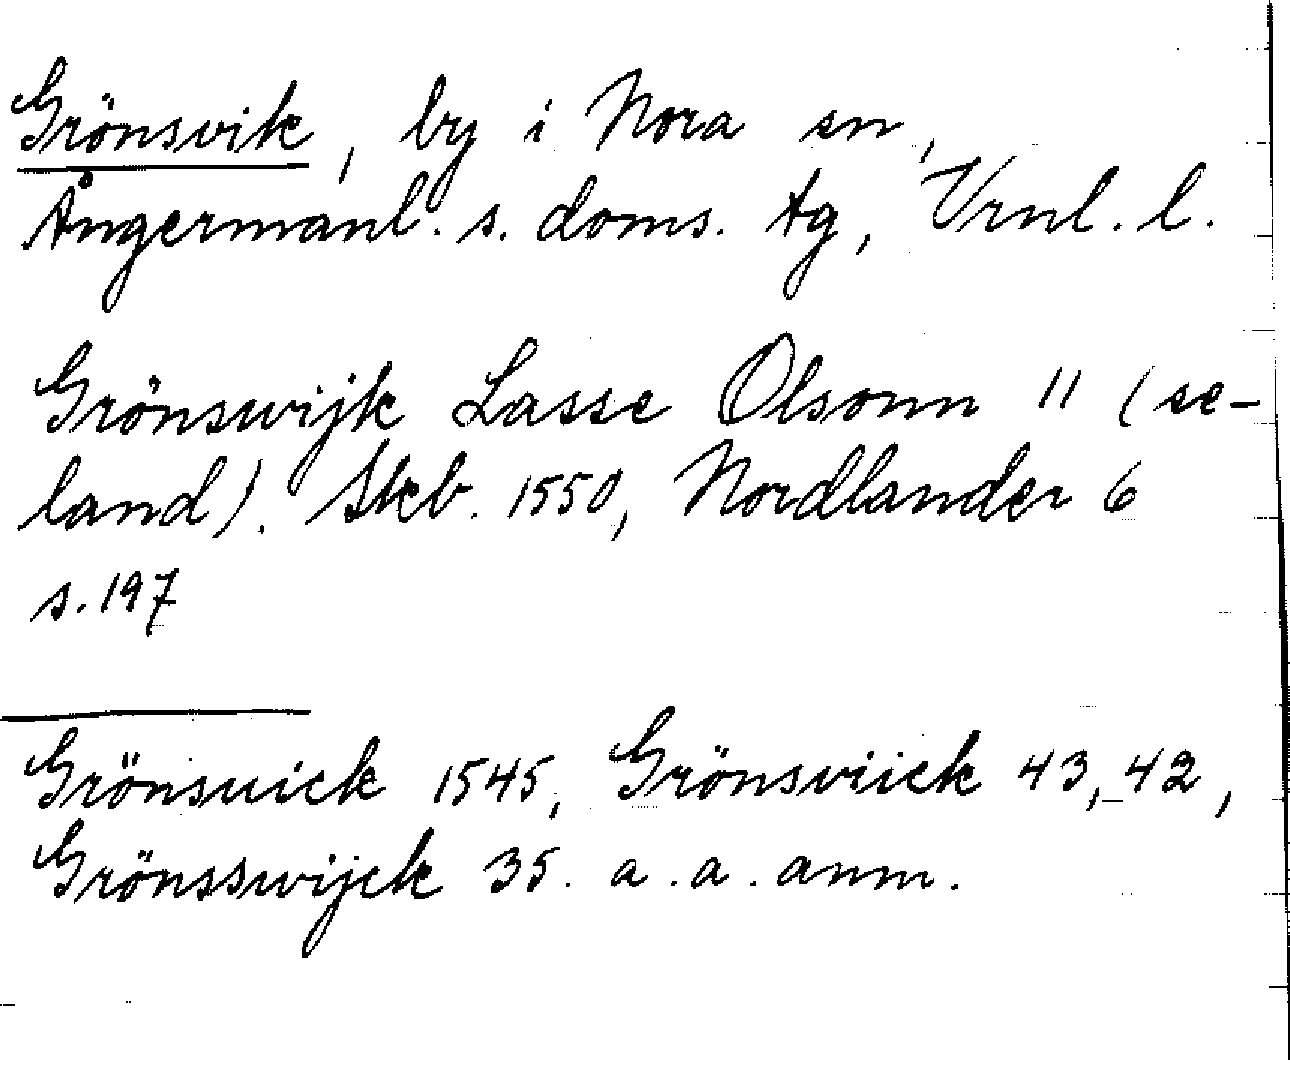 Grönsvik, by i Nora sn,
Ångermanl. s. doms. tg, Vrnl. l.
Grönswijk Lasse Olsonn 11 (se-
land). Skb. 1550, Nordlander 6
s. 197
Grönsuick 1545, Grönsviick 43, 42,
Grönsswijck 35. a. a. anm.